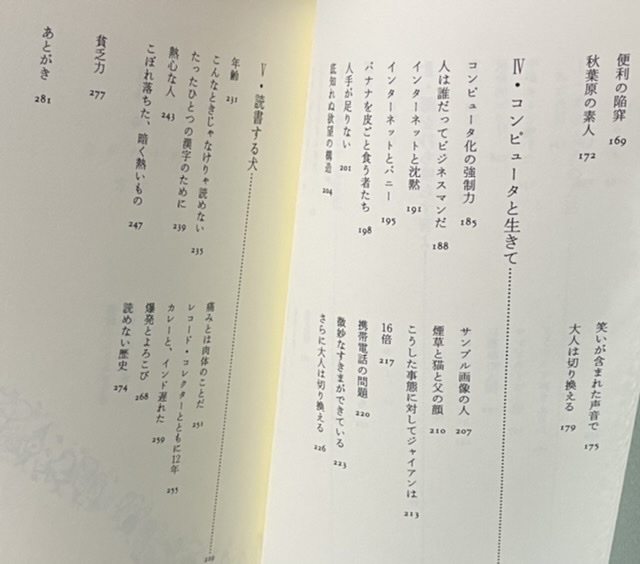 便利の陥穽 169
秋葉原の素人 172
笑いが含まれた声音で 175
大人は切り換える 179
Ⅳ・コンピュータと生きて
コンピュータ化の強制力 185
人は誰だってビジネスマンだ 188
インターネットと沈黙 191
インターネットとバニー 195
バナナを皮ごと食う者たち 198
人手が足りない 201
底知れぬ欲望の構造 204
サンプル画像の人 207
煙草と猫と父の顔 210
こうした事態に対してジャイアンは 213
16倍 217
携帯電話の問題 220
微妙なすきまができている 223
さらに大人は切り換える 226
Ⅴ・読書する犬
年齢 231
こんなときじゃなけりゃ読めない 235
たったひとつの漢字のために 239
熱心な人 243
こぼれ落ちた、暗く熱いもの 247
痛みとは肉体のことだ 251
レコード・コレクターとともに12年 255
カレーと、インド遅れた 259
爆発とよろこび 268
読めない歴史 274
貧乏力 277
あとがき 281